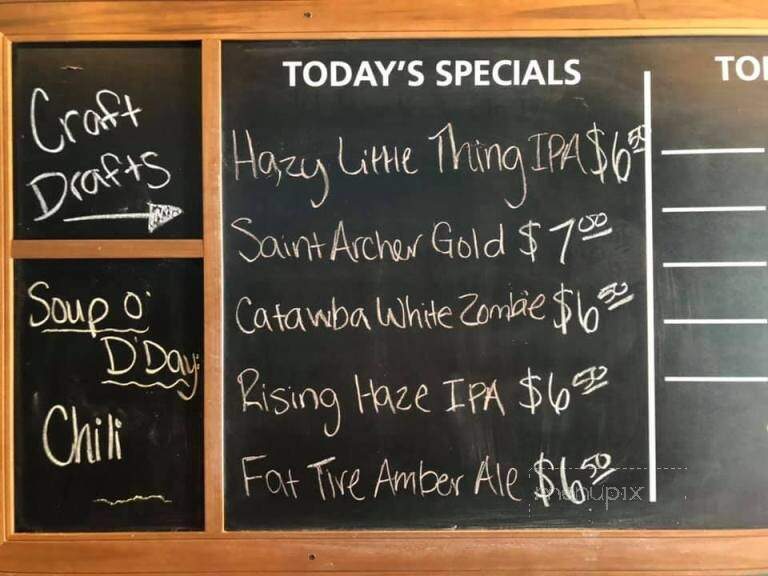 Craft
Drafts
Soup O'
D'Day:
Chili
TODAY'S SPECIALS
Hazy Little Thing IPA $6.50
Saint Archer Gold $7.00
Catawba White Zombie $6.50
Rising Haze IPA $6.50
Fat Tire Amber Ale $6.50
menupix
TO